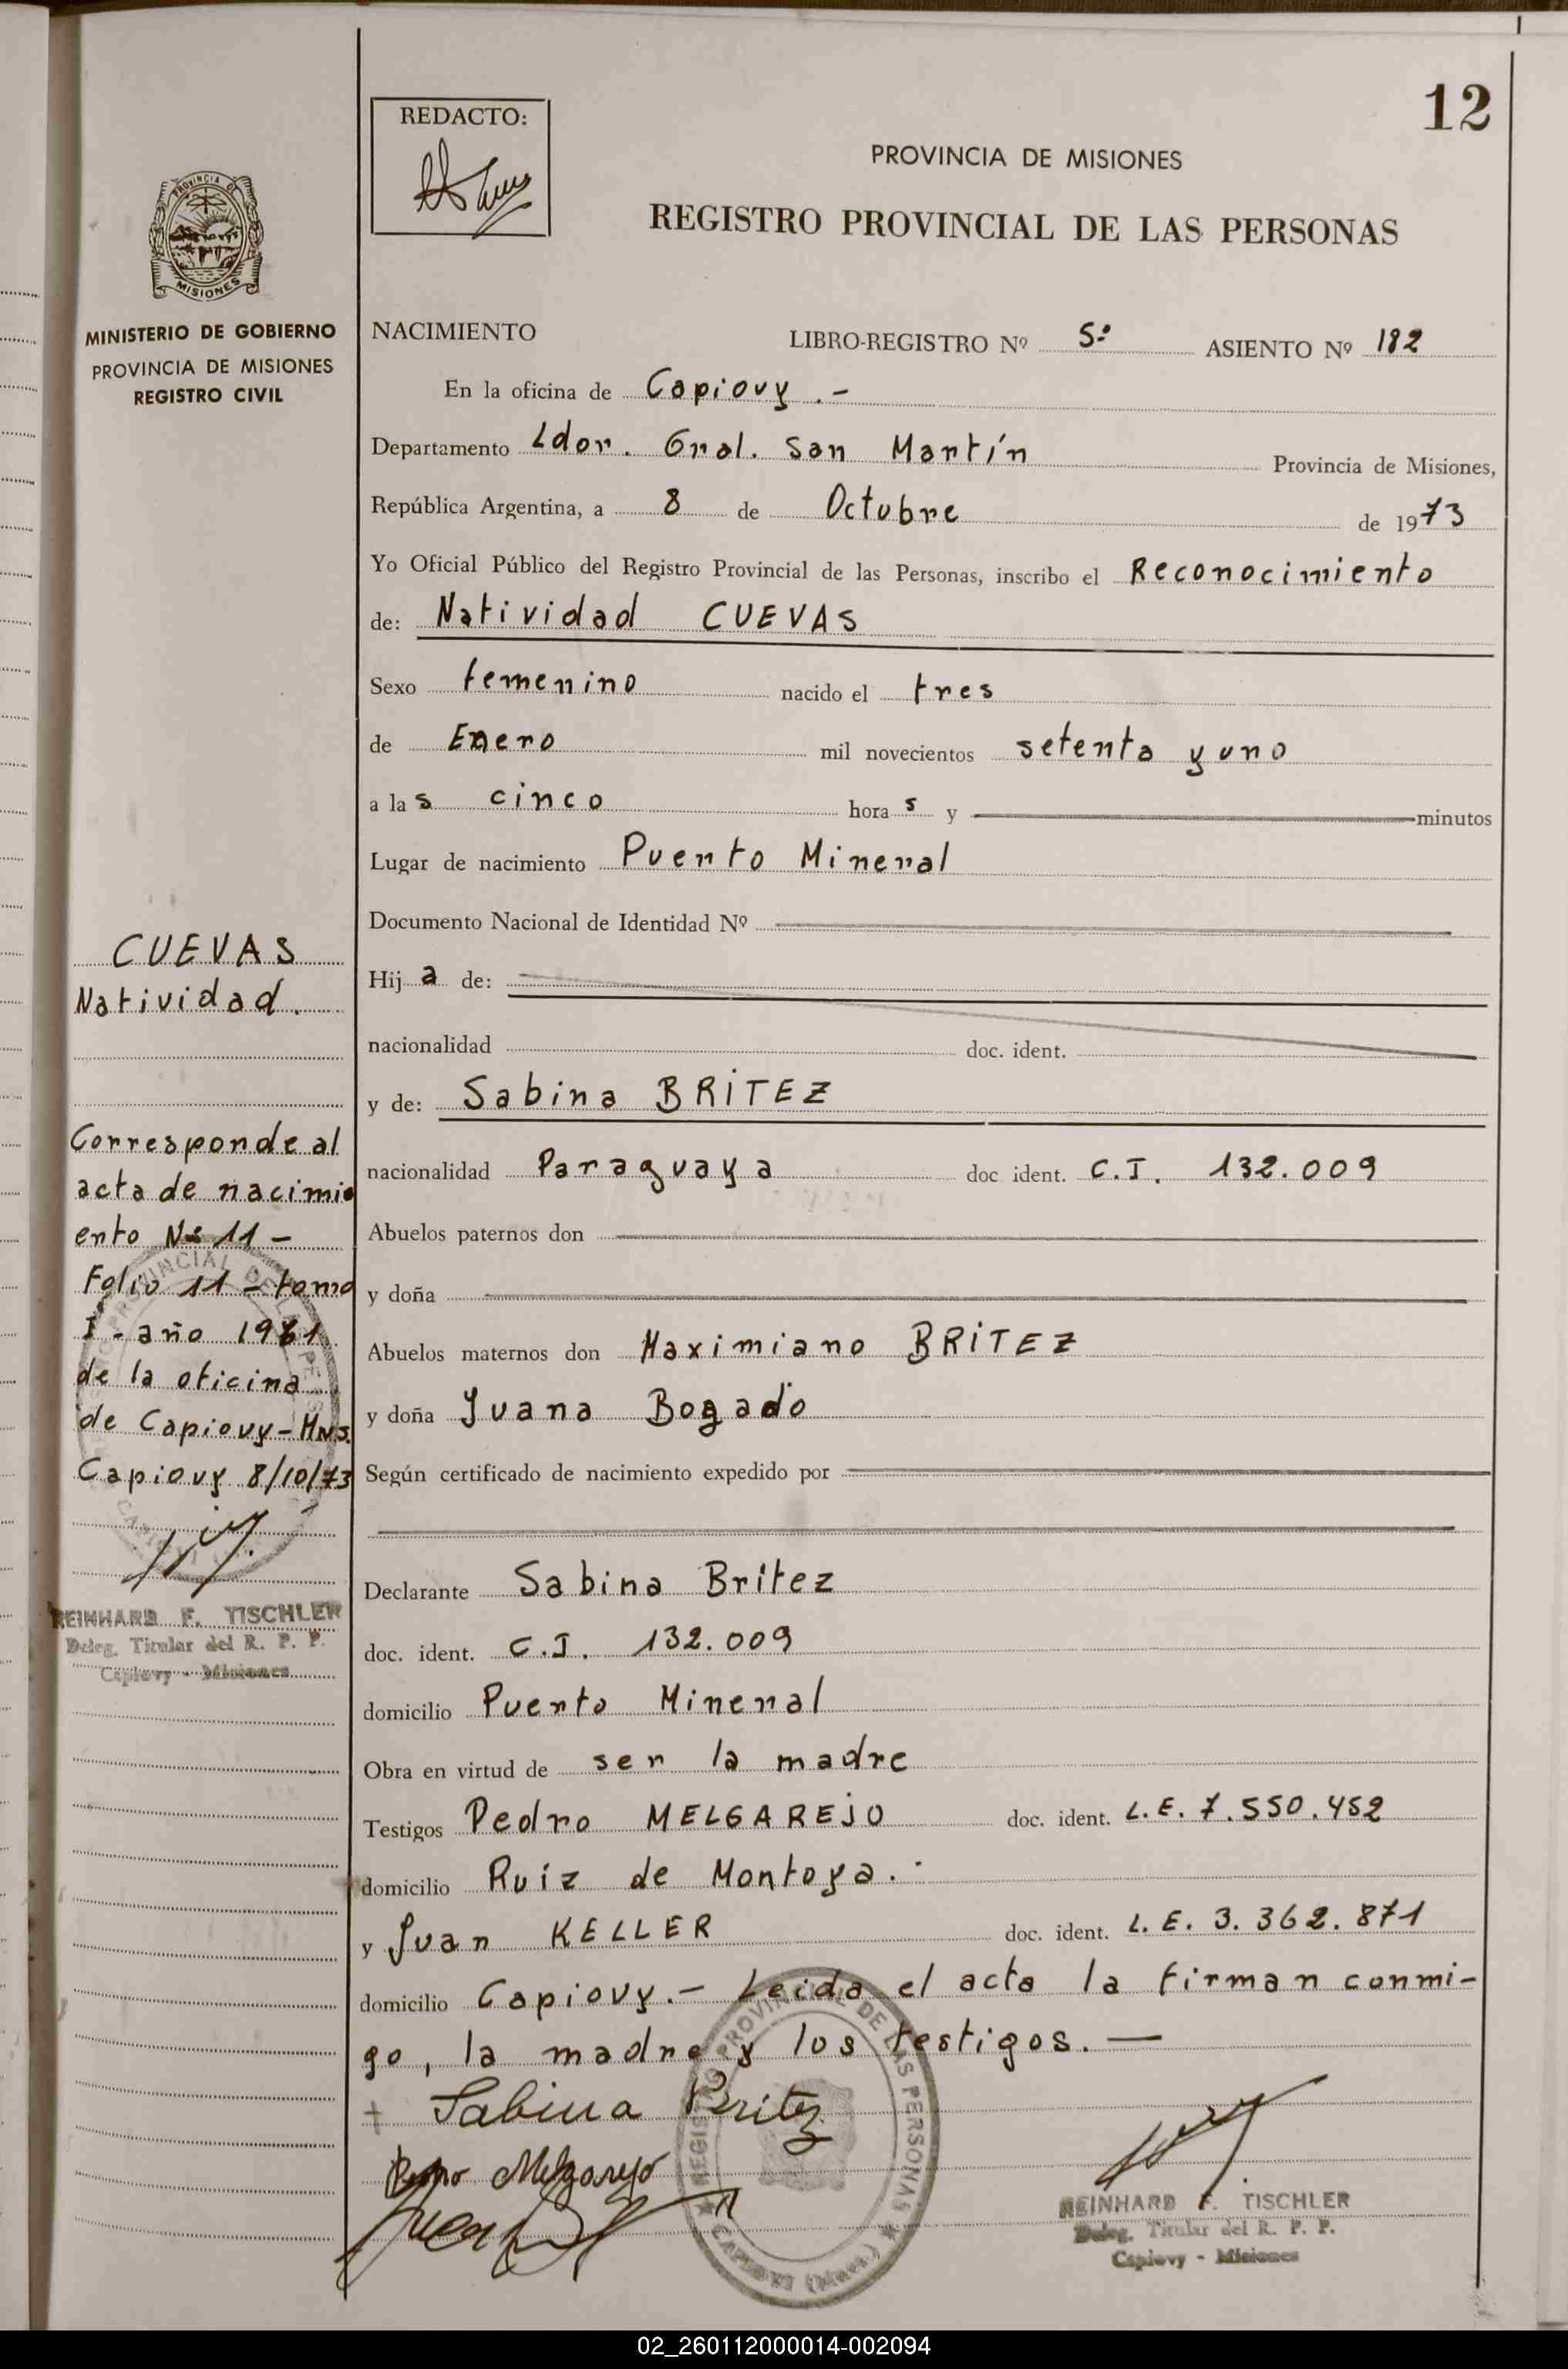 12
REDACTO:
PROVINCIA DE MISIONES
REGISTRO PROVINCIAL DE LAS PERSONAS
PROVINCIA DE
MISIONES
MINISTERIO DE GOBIERNO
PROVINCIA DE MISIONES
REGISTRO CIVIL
NACIMIENTO LIBRO-REGISTRO Nº 5º ASIENTO Nº 182
En la oficina de Capiovy.-
Departamento Ldor. Gral. San Martín Provincia de Misiones,
República Argentina, a 8 de Octubre de 1973
Yo Oficial Público del Registro Provincial de las Personas, inscribo el Reconocimiento
de: Natividad CUEVAS
Sexo femenino nacido el tres
de Enero mil novecientos setenta y uno
a las cinco horas y minutos
Lugar de nacimiento Puerto Mineral
Documento Nacional de Identidad Nº
Hija de:
nacionalidad doc. ident.
y de: Sabina BRITEZ
nacionalidad Paraguaya doc ident. C.I. 132.009
Abuelos paternos don
y doña
Abuelos maternos don Maximiano BRITEZ
y doña Juana Bogado
Según certificado de nacimiento expedido por
Declarante Sabina Britez
doc. ident. C.I. 132.009
domicilio Puerto Mineral
Obra en virtud de ser la madre
Testigos Pedro MELGAREJO doc. ident. L.E. 7.550.452
domicilio Ruiz de Montoya.-
y Juan KELLER doc. ident. L.E. 3.362.871
domicilio Capiovy.- Leida el acta la firman conmi-
go, la madre y los testigos.—
Sabina Britez
Pedro Melgarejo
REGISTRO PROVINCIAL DE LAS PERSONAS
REINHARD F. TISCHLER
Deleg. Titular del R. P. P.
Capiovy - Misiones
CUEVAS
Natividad.
Corresponde al
acta de nacimi
ento Nº 11 -
Folio 11 - tomo
I - año 1971
de la oficina
de Capiovy - Mns.
Capiovy 8/10/73
REINHARD F. TISCHLER
Deleg. Titular del R. P. P.
Capiovy - Misiones
02_260112000014-002094